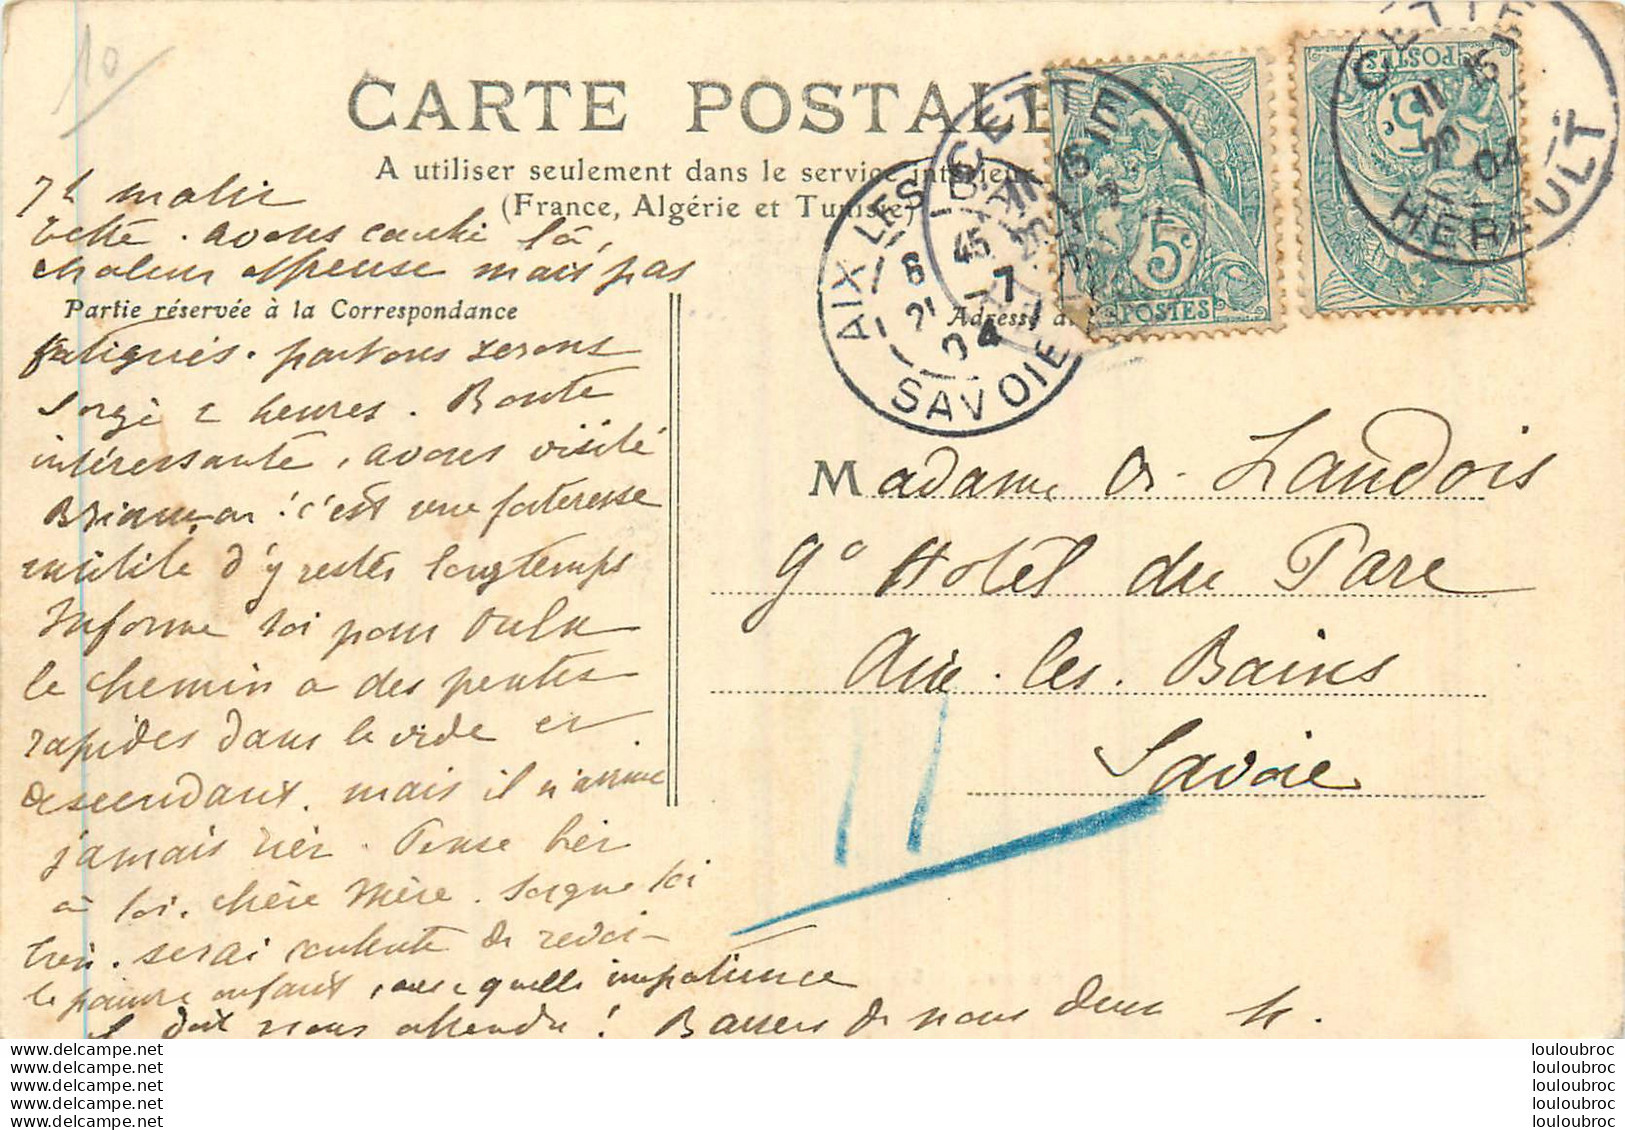 10
CARTE POSTALE
A utiliser seulement dans le service intérieur
(France, Algérie et Tunisie)
7h matin
Cette. avons couché là,
chaleur affreuse mais pas
Partie réservée à la Correspondance
fatigués. partons serons
2 heures. Route
intéressante, avons visité
Briançon! c'est une forteresse
inutile d'y rester longtemps
Informe toi pour Oulx
le chemin a des pentes
rapides dans le vide en
descendant. mais il n'arrive
jamais rien. Pense bien
à toi, chère Mère. Soigne toi
bien. serai contente de revoir
le pauvre enfant, avec quelle impatience
il doit nous attendre! Baisers de nous deux H.
CETTE
11 15
20
7
04
HERAULT
5c
POSTES
AIX LES BAINS
6 45
21 -7
04
SAVOIE
Adresse du
Madame A. Landois
Gd Hotel du Parc
Aix-les-Bains
Savoie
www.delcampe.net
www.delcampe.net
www.delcampe.net
www.delcampe.net
www.delcampe.net
louloubroc
louloubroc
louloubroc
louloubroc
louloubroc